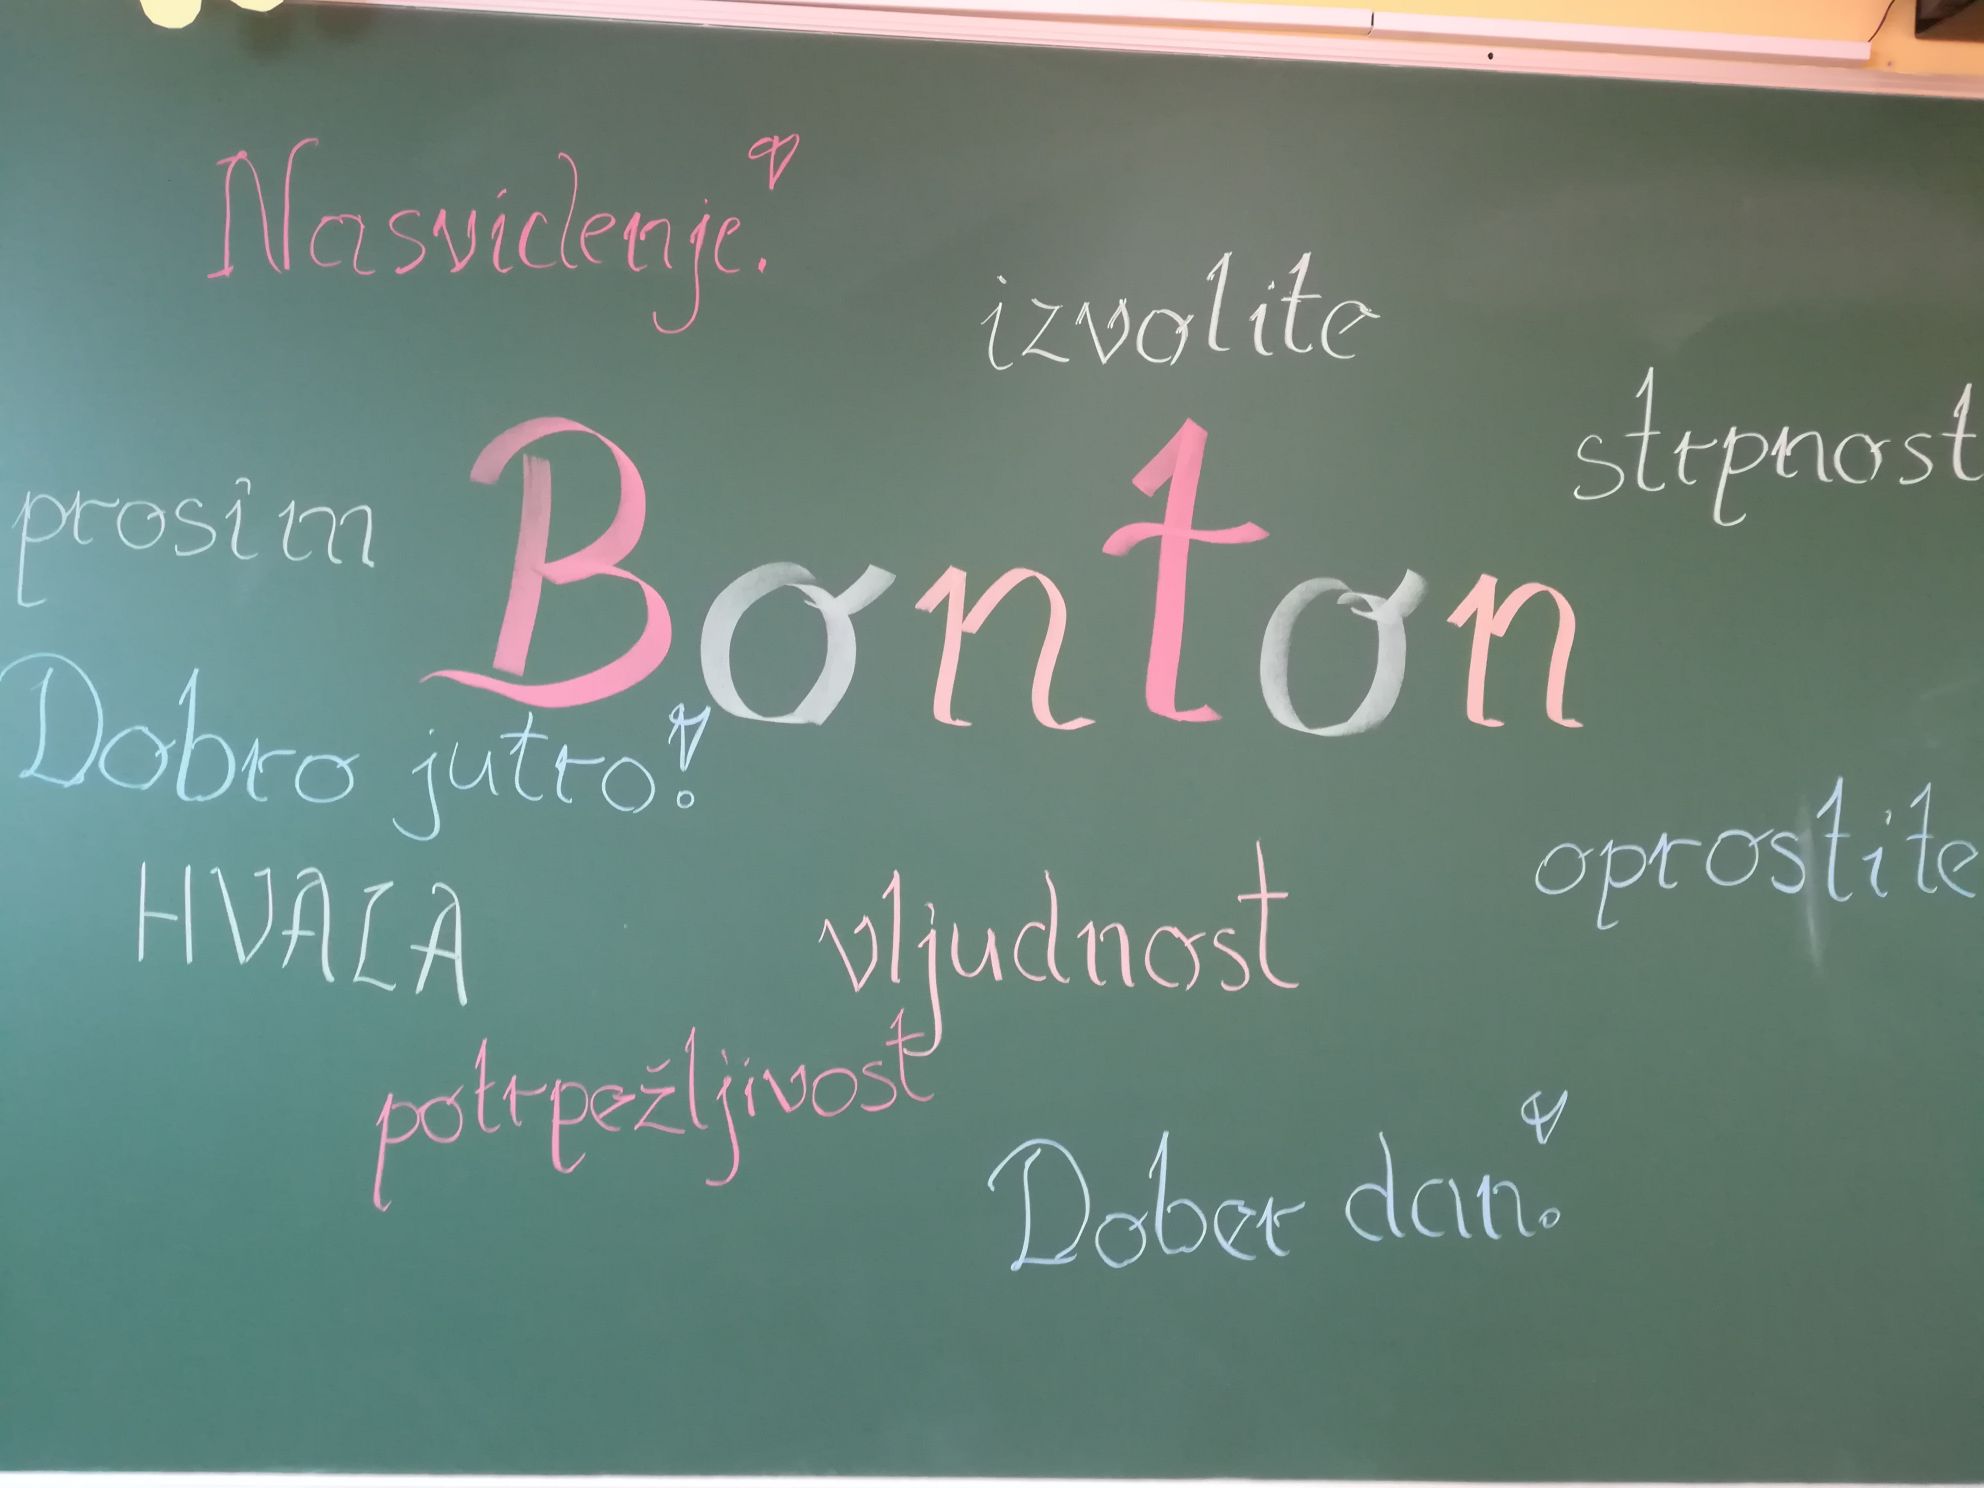 Nasvidenje.
izvolite
strpnost
prosim
Bonton
Dobro jutro!
oprostite
HVALA
vljudnost
potrpežljivost
Dober dan.